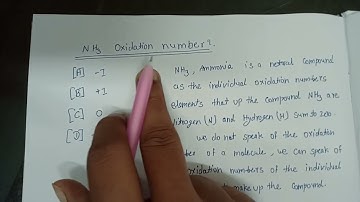 NH3 Oxidation number?
[A] -1
[B] +1
[C] 0
[D]
NH3, Ammonia is a netral compound
as the individual oxidation numbers
elements that up the compound NH3 are
(N) and Hydrogen (H) Sum to zero.
we do not speak of the oxidation
of a molecule, we can speak of
oxidation numbers of the individual
make up the compound.